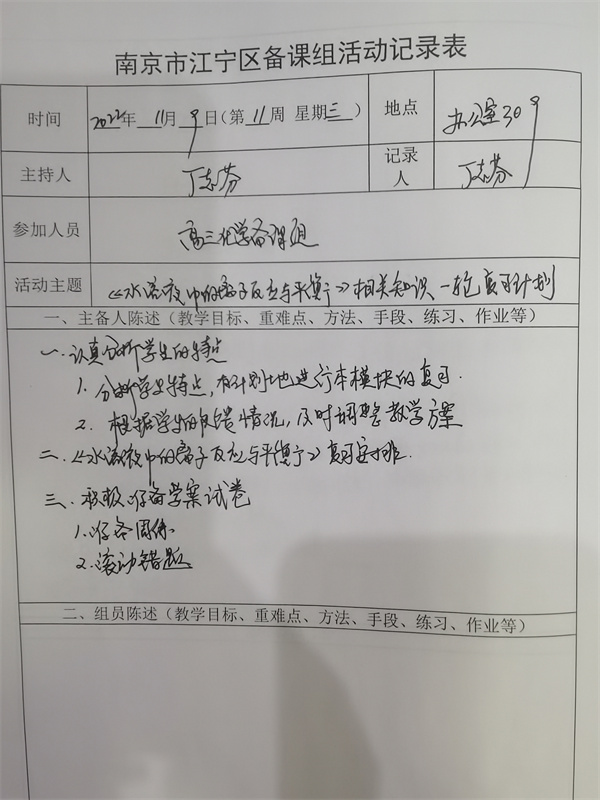 南京市江宁区备课组活动记录表
时间 2022年 11月 9日(第 11周 星期三) 地点 办公室309
主持人 丁志芬 记录人 丁志芬
参加人员 高三化学备课组
活动主题 《水溶液中的离子反应与平衡》相关知识一轮复习计划
一、主备人陈述(教学目标、重难点、方法、手段、练习、作业等)
一.认真分析学生的特点
1.分析学生特点,有计划地进行本模块的复习.
2.根据学生的反馈情况,及时调整教学方案
二.《水溶液中的离子反应与平衡》复习安排.
三.积极准备学案试卷
1.准备周练
2.滚动错题
二、组员陈述(教学目标、重难点、方法、手段、练习、作业等)